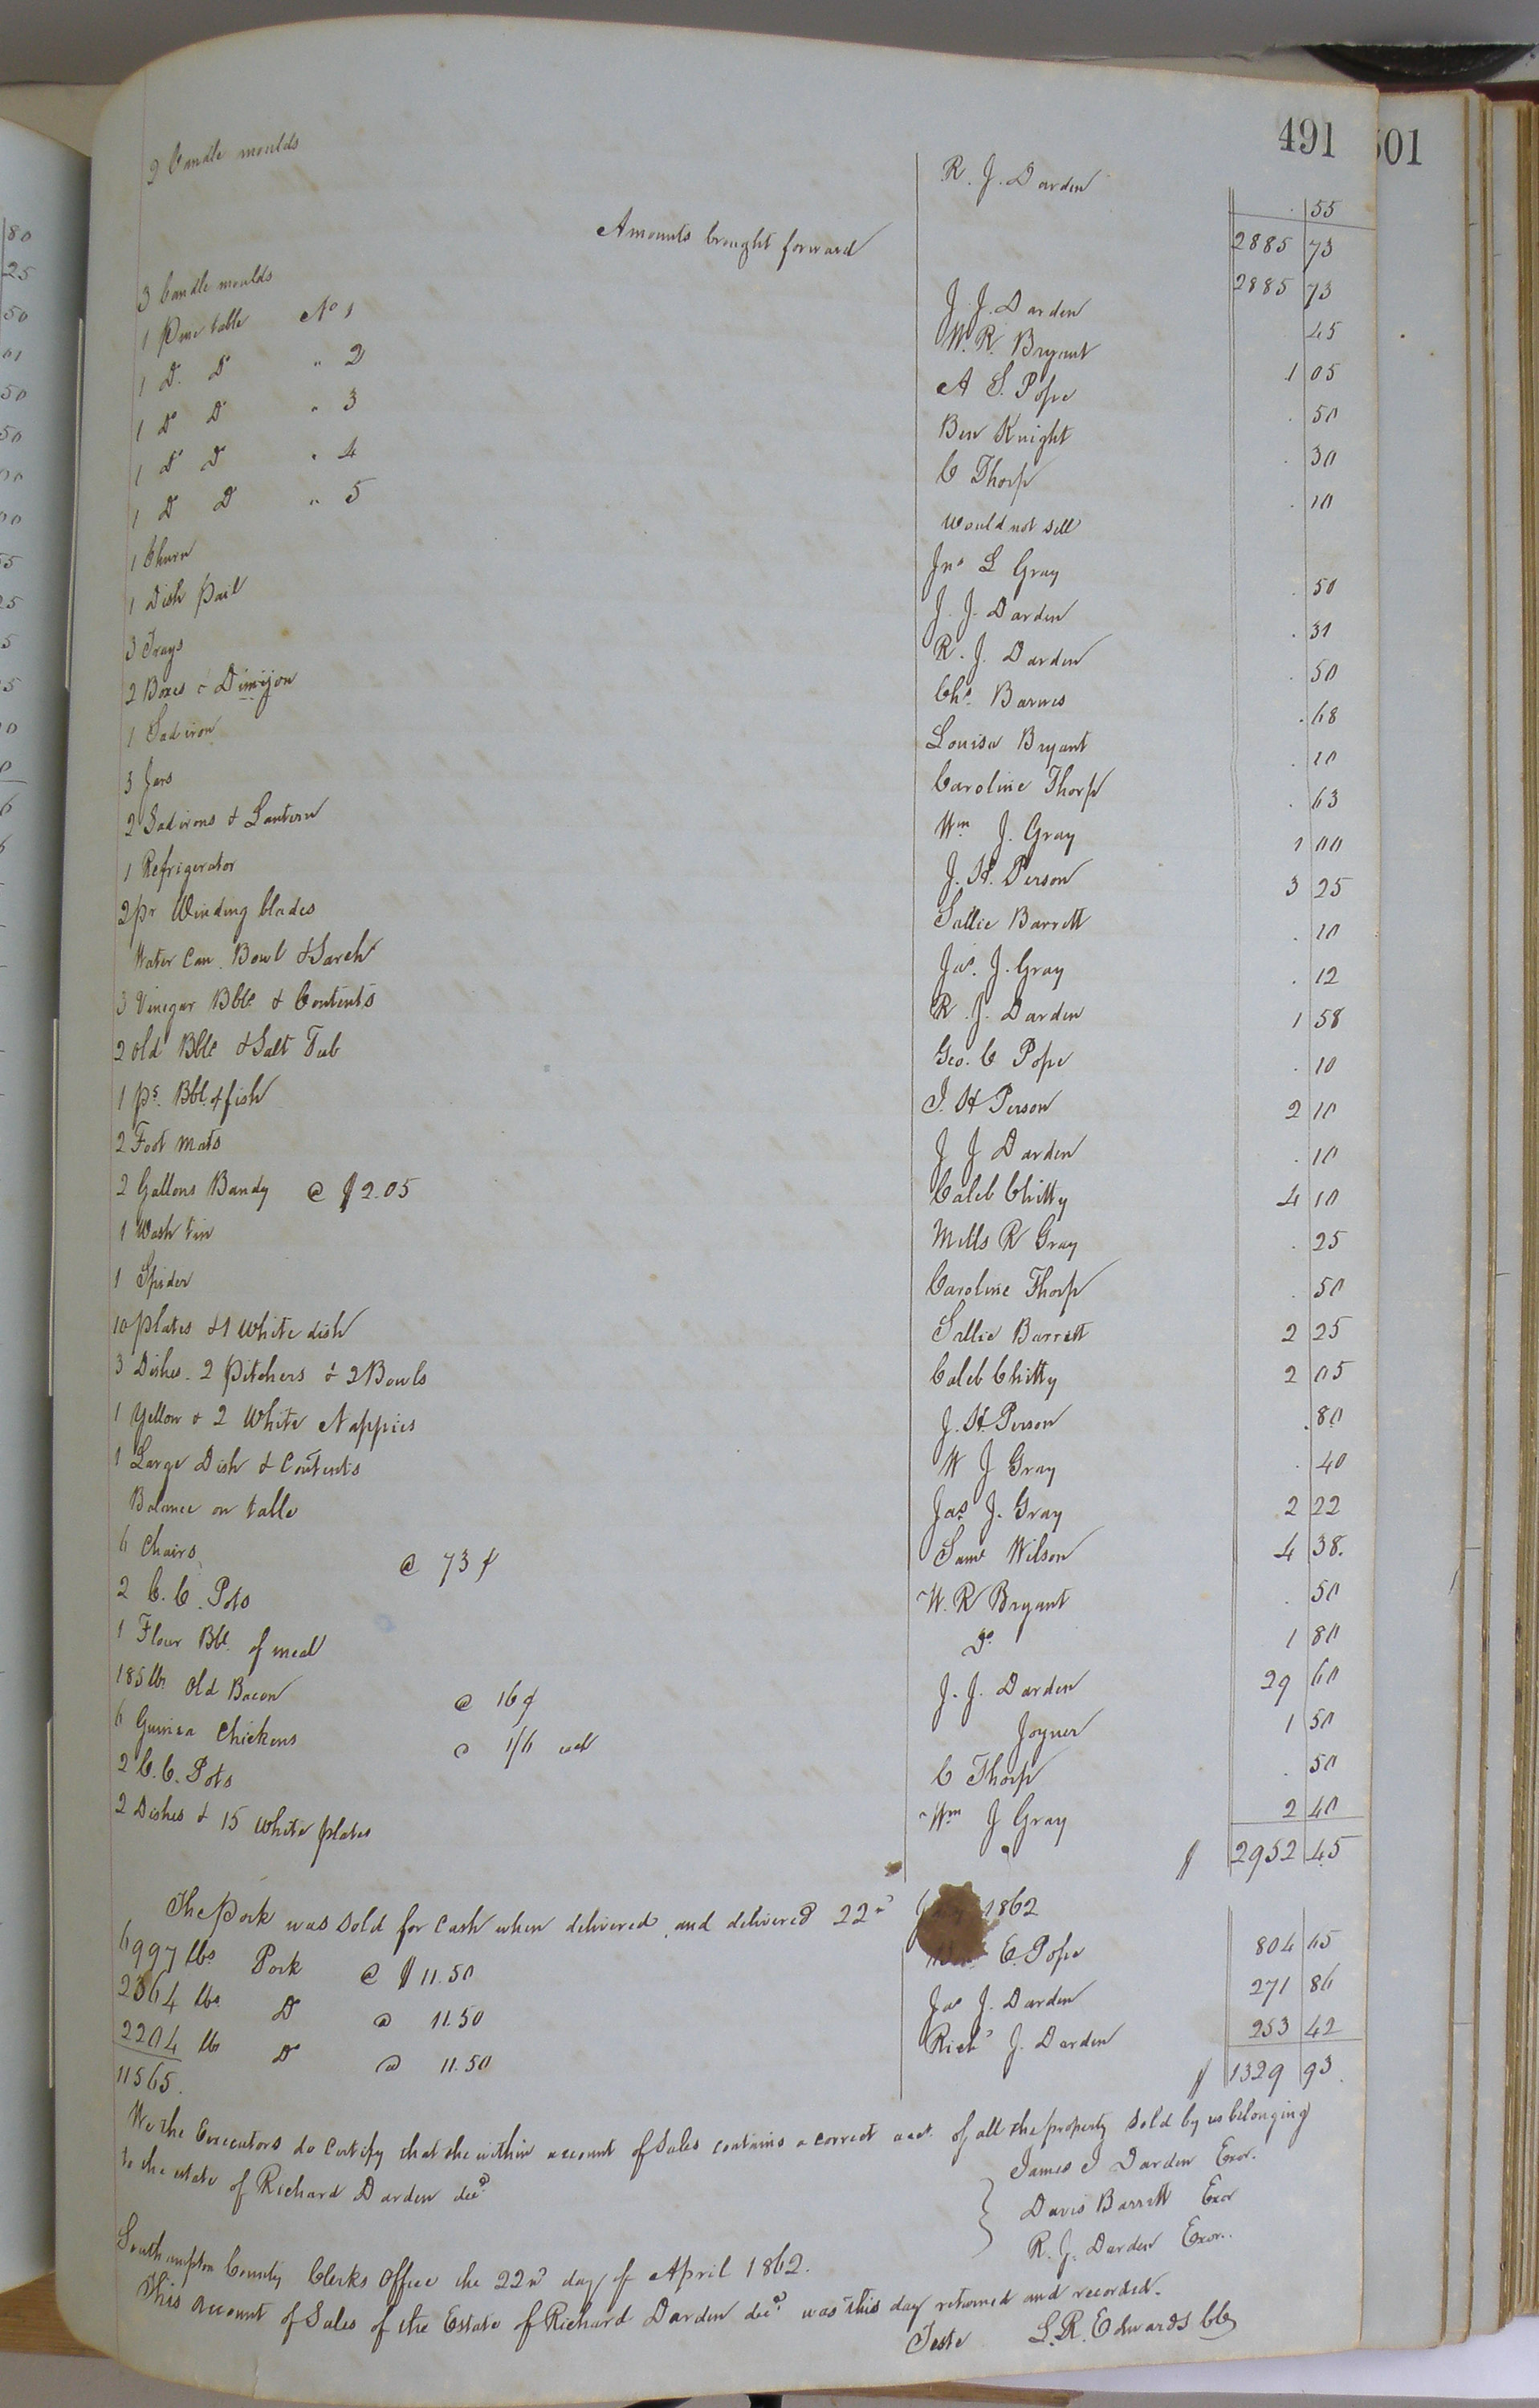 491
501
2 Candle moulds R. J. Darden . 55
2885 73
Amounts brought forward 2885 73
3 Candle moulds J. J. Darden 45
1 Pine table No 1 W. R. Bryant 1 05
1 Do Do " 2 A S. Pope . 50
1 Do Do " 3 Ben Knight . 30
1 Do Do " 4 C Thorp . 10
1 Do Do " 5 Would not sell
1 Churn Jno L Gray . 50
1 Dish pail J. J. Darden . 31
3 Trays R. J. Darden . 50
2 Boxes & Dimijon Chs. Barnes . 68
1 Sad iron Louisa Bryant . 10
3 Jars Caroline Thorp . 63
2 Sadirons & Lantern Wm J. Gray 1 00
1 Refrigerator J. H. Person 3 25
2 pr Winding blades Sallie Barrett . 10
Water Can. Bowl & Sarch Jas. J. Gray . 12
3 Vinegar Bbls & Contents R. J. Darden 1 58
2 old Bbls & Salt Tub Geo. C Pope . 10
1 ps. Bbl. of fish J. H Person 2 10
2 Foot mats J J Darden . 10
2 Gallons Bandy @ $2.05 Caleb Chitty 4 10
1 Wash tin Mills R Gray . 25
1 Spider Caroline Thorp . 50
10 plates & 1 White dish Sallie Barrett 2 25
3 Dishes. 2 Pitchers & 2 Bowls Caleb Chitty 2 05
1 Yellow & 2 White Nappies J. H. Person . 80
1 Large Dish & Contents W J Gray . 40
Balance on table Jas J. Gray 2 22
6 Chairs @ 73¢ Saml Wilson 4 38.
2 C. C. Pots W. R Bryant . 50
1 Flour Bbl. of meal Do 1 80
185 lbs Old Bacon @ 16¢ J. J. Darden 29 60
6 Guinea Chickens @ 1/6 each Joyner 1 50
2 C. C. Pots C Thorp . 50
2 Dishes & 15 White plates Wm J Gray 2 40
$ 2952 45
The Pork was sold for Cash when delivered, and delivered 22nd 1862
6997 lbs Pork @ $11.50 E. Pope 804 65
2364 lbs Do @ 11.50 Jas J. Darden 271 86
2204 lb Do @ 11.50 Richd J. Darden 253 42
11565. $ 1329 93.
We the Executors do certify that the within account of Sales contains a correct acct. of all the property sold by us belonging
to the estate of Richard Darden decd
James J Darden Exor.
Davis Barrett Exor
R. J. Darden Exor.
Southampton County Clerks Office the 22nd day of April 1862.
This account of Sales of the Estate of Richard Darden decd. was this day returned and recorded.
Teste L. R. Edwards Clk